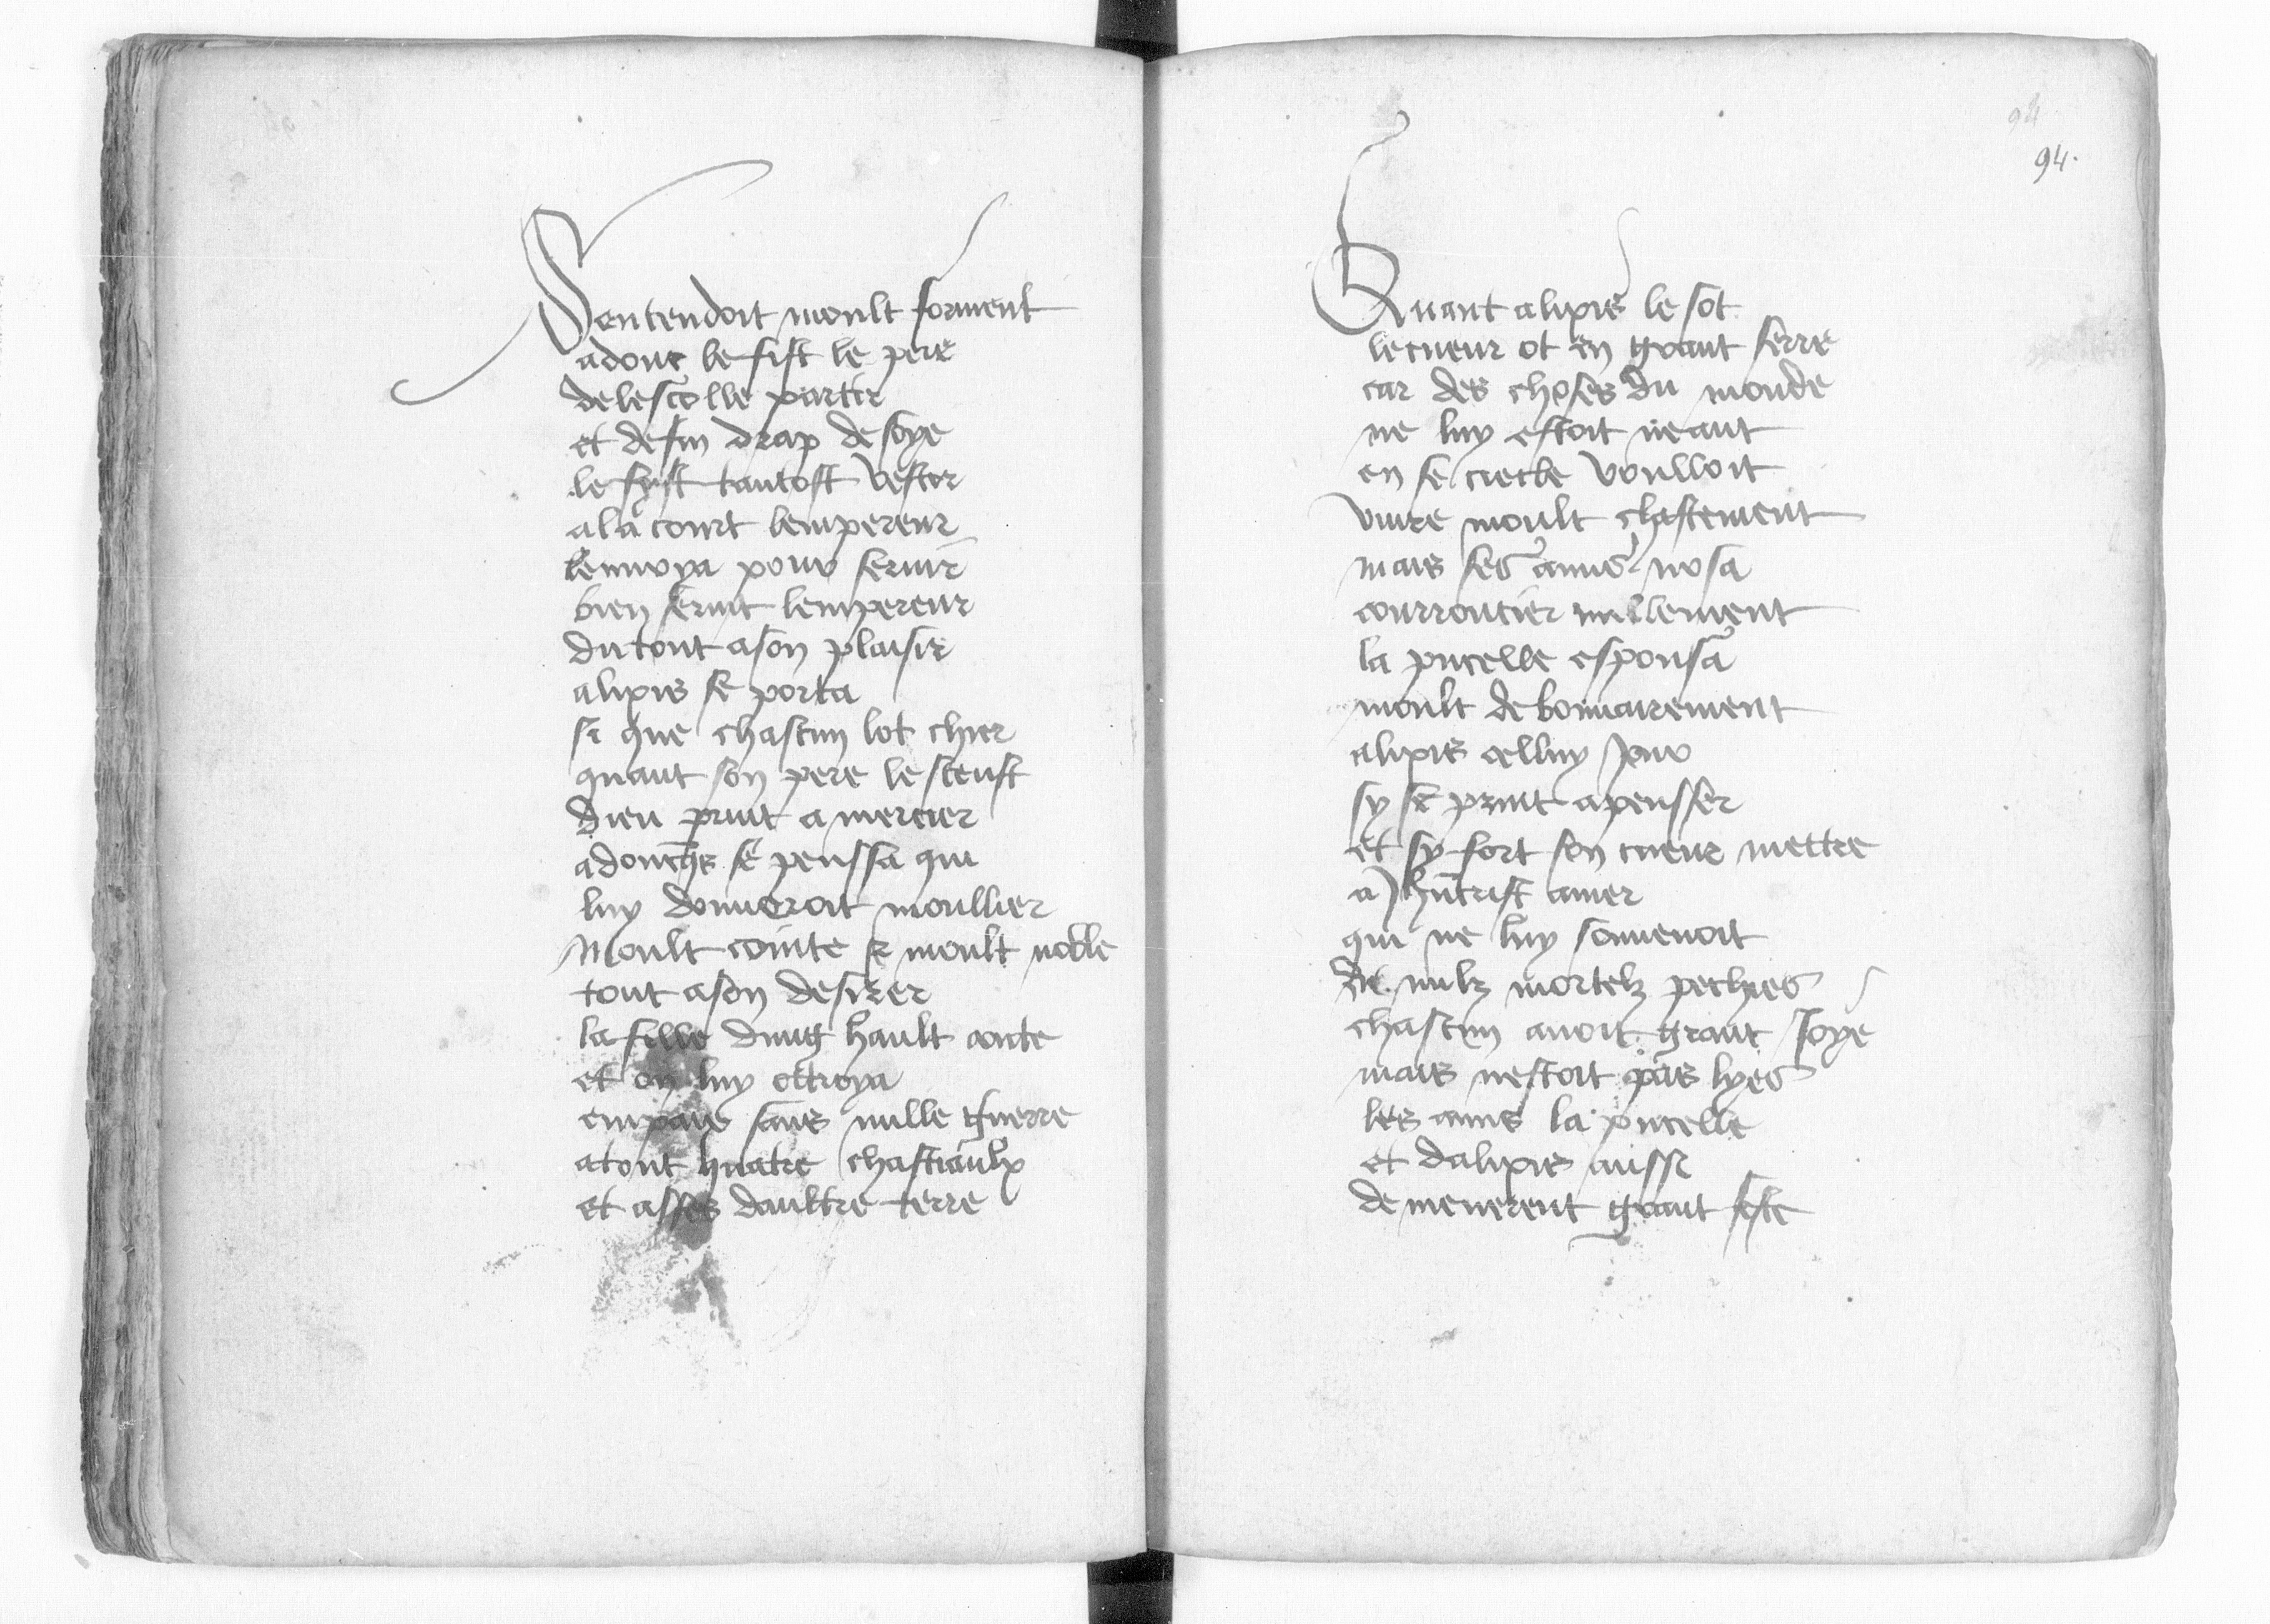 Sentendoit moult forment
adonc le fist le pere
de lescolle partir
et de fin drap de soye
le fyst tantost vestir
a la court lempereur
lenuoya pour seruir
bien seruit lempereur
du tout a son plaisir
alipis se porta
si que chascun lot chier
quant son pere le sceust
dieu print a mercier
adoncqs se penssa qui
luy donneroit moullier
Moult cointe et moult noble
tout a son desirer
la fille dung hault conte
et on luy ottroya
en paix sans nulle guerre
atout quatre chastiaulx
et asses daultre terre
94
94.
Quant alipis le sot
le cueur ot en grant serre
car des choses du monde
ne luy estoit neant
en se ciecle voulloit
viure moult chastement
mais ses amis nosa
courroucier nullement
la pucelle espousa
moult debonnairement
alipis celluy Jour
sy se print a pensser
et sy fort son cueur mettre
a Jhucrist amer
qui ne luy souuenoit
de nulz mortelz pechies
chascun auoit grant Joye
mais nestoit pas lyes
les amis la pucelle
et dalipis aussi
demenerent grant feste